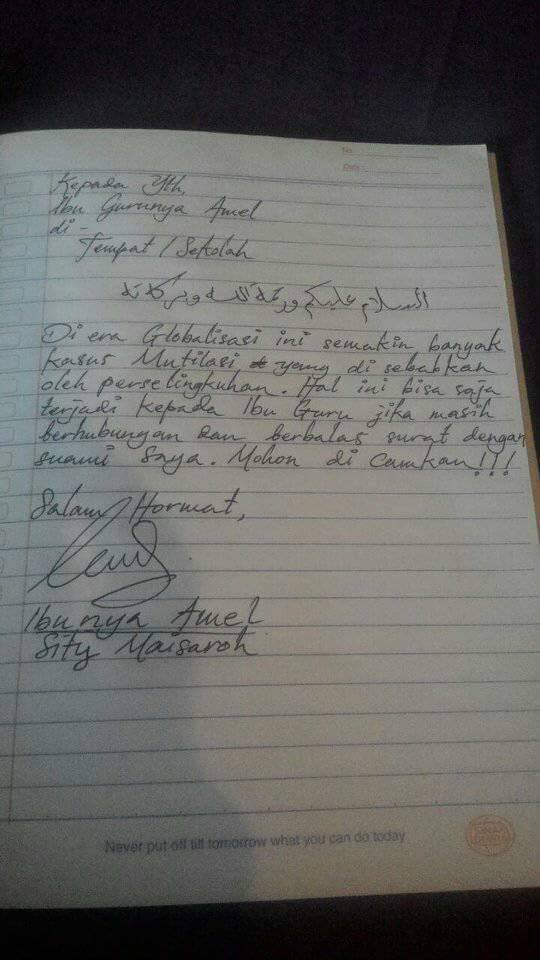 No.
Date
Kepada Yth,
Ibu Gurunya Amel
di -
Tempat / Sekolah
السلام عليكم ورحمة الله وبركاته
Di era Globalisasi ini semakin banyak
kasus Mutilasi yang di sebabkan
oleh perselingkuhan. Hal ini bisa saja
terjadi kepada Ibu Guru jika masih
berhubungan dan berbalas surat dengan
suami saya. Mohon di camkan!!!
Salam Hormat,
Ibunya Amel
Sity Maisaroh
Never put off till tomorrow what you can do today